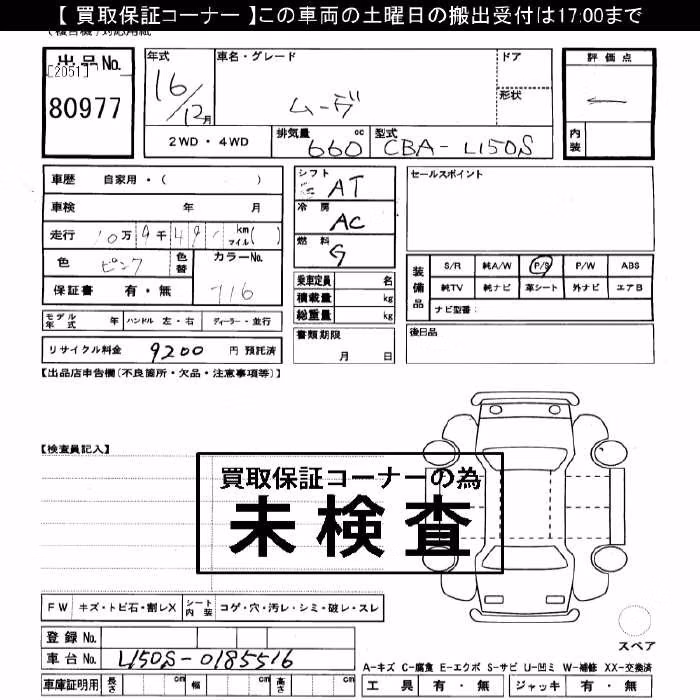 【 買取保証コーナー 】この車両の土曜日の搬出受付は17:00まで
出品No.
[2051]
80977
年式
16/12月
車名・グレード
ムーヴ
ドア
形状
評価点
内装
2WD・4WD
排気量 660 cc
型式 CBA-L150S
車歴 自家用・( )
車検 年 月
走行 10万9千491 km マイル( )
色 ピンク 色替
カラーNo.
716
保証書 有・無
モデル年式 年 ハンドル 左・右 ディーラー・並行
リサイクル料金 9200 円 預託済
シフト AT
冷房 AC
燃料 G
乗車定員 名
積載量 kg
総重量 kg
書類期限
月 日
セールスポイント
装備品
S/R 純A/W P/S P/W ABS
純TV 純ナビ 革シート 外ナビ エアB
ナビ型番:
後日品
【出品店申告欄(不良箇所・欠品・注意事項等)】
【検査員記入】
買取保証コーナーの為
未検査
FW キズ・トビ石・割レX シート内装 コゲ・穴・汚レ・シミ・破レ・スレ
登録No.
車台No. L150S-0185516
車庫証明用 長さ cm 幅 cm 高さ cm
スペア
A-キズ C-腐食 E-エクボ S-サビ U-凹ミ W-補修 XX-交換済
工具 有・無 ジャッキ 有・無